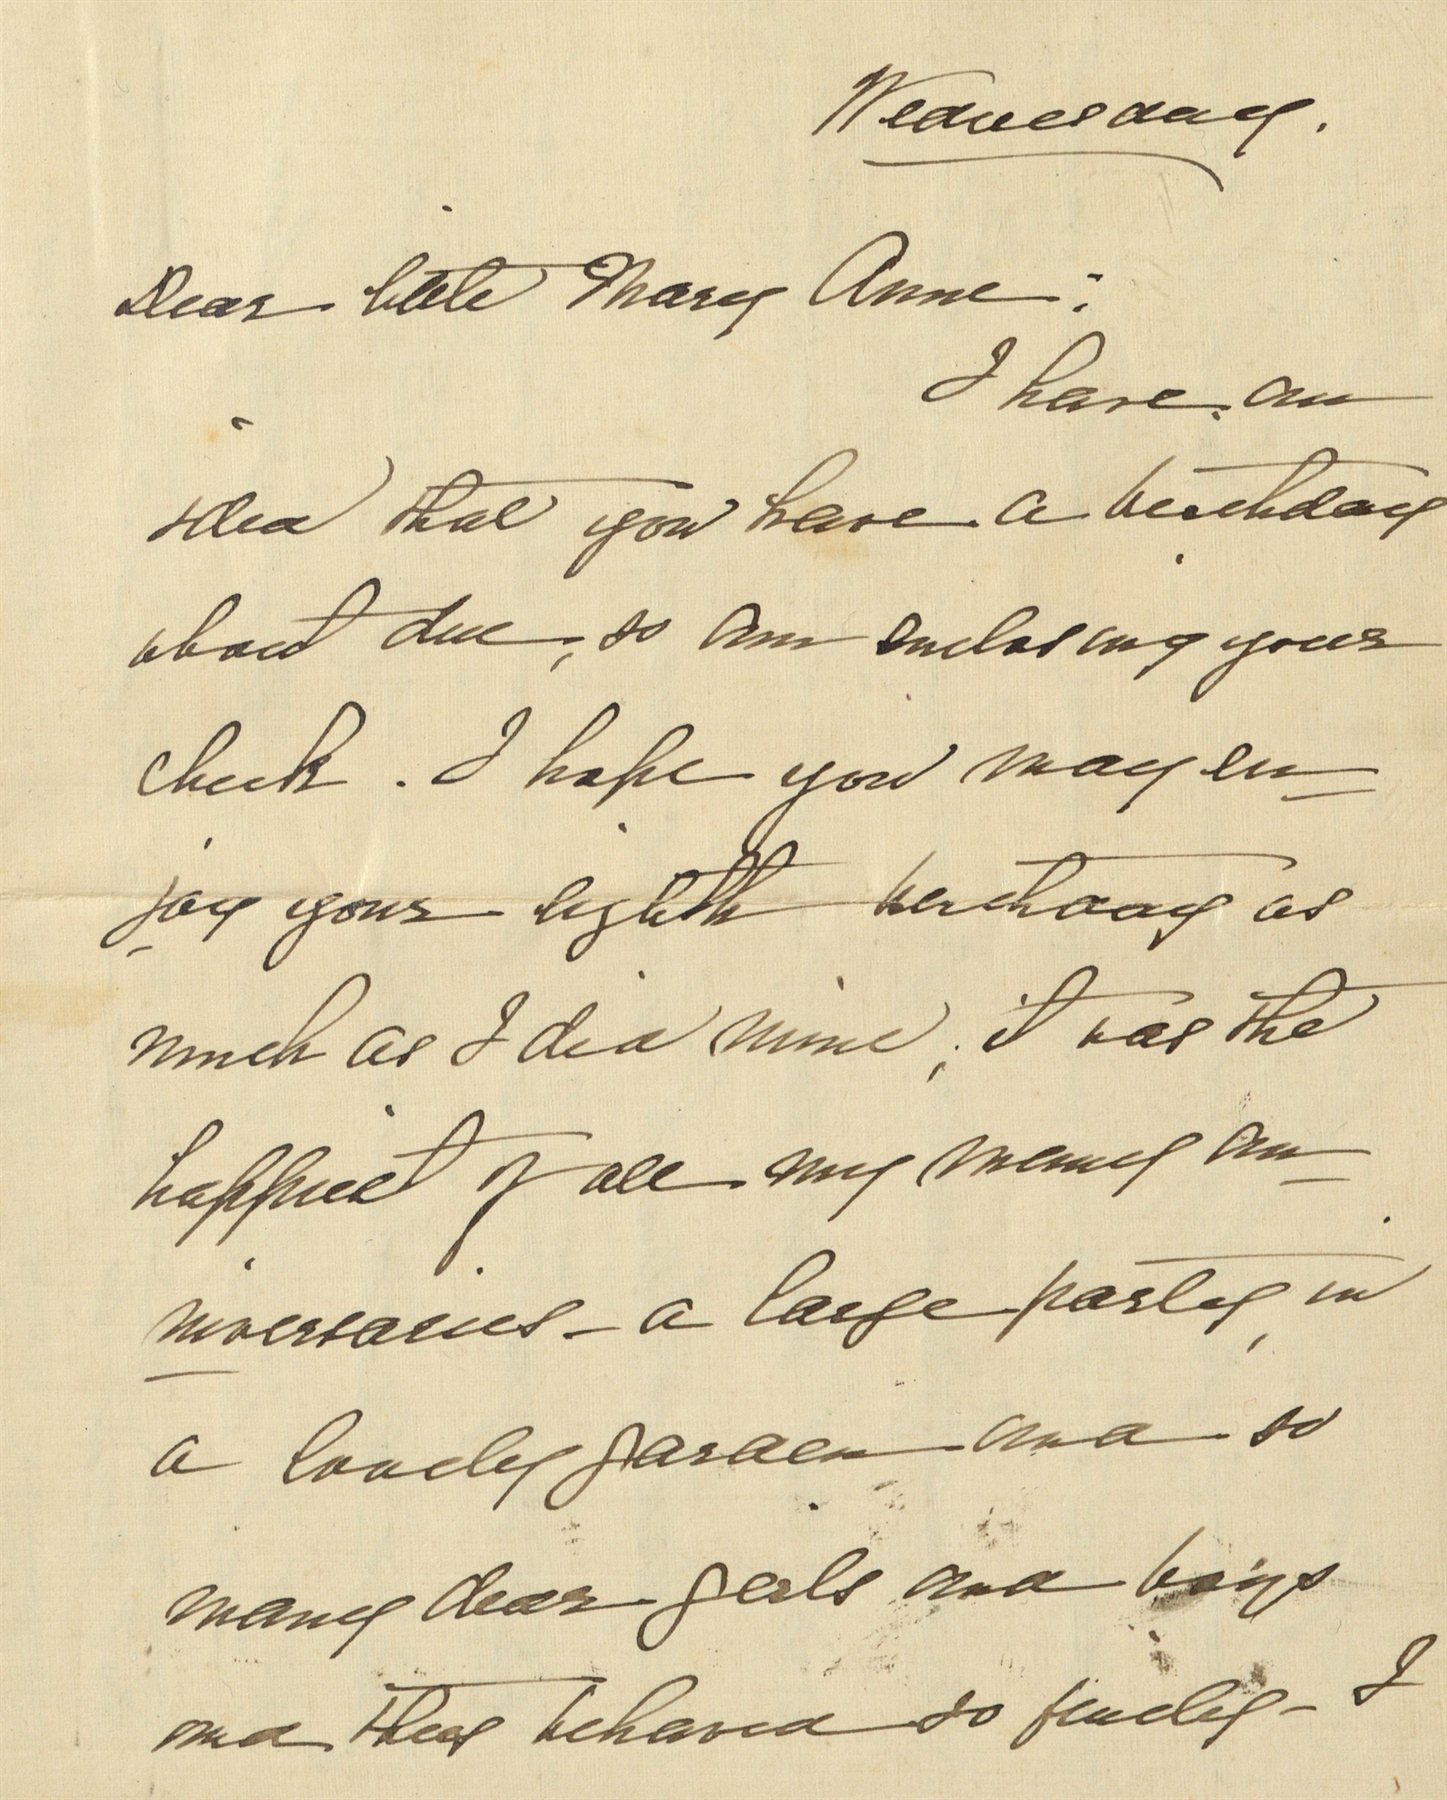 Wednesday.
Dear little Mary Anne:
I have an
idea that you have a birthday
about due, so am enclosing your
check. I hope you may en-
joy your eighth birthday as
much as I did mine, it was the
happiest of all my many an-
niversaries - a large party, in
a lovely garden and so
many dear girls and boys
and they behaved so finely - I